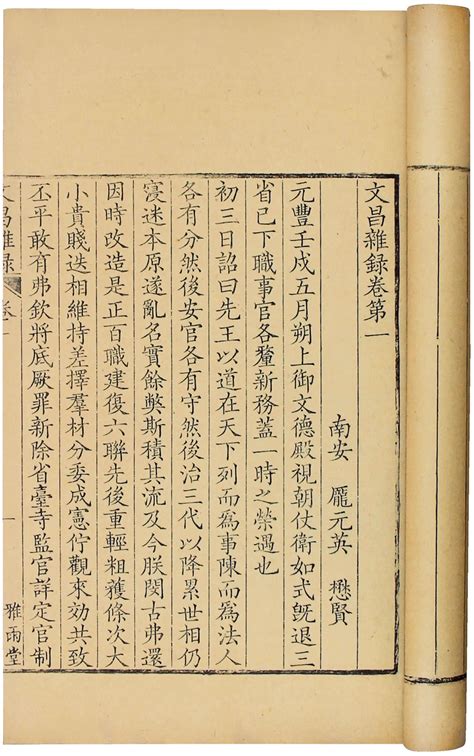 文昌雜錄卷第一
南安 龎元英 懋賢
元豐壬戌五月朔上御文德殿視朝仗衛如式旣退三
省已下職事官各釐新務蓋一時之榮遇也
初三日詔曰先王以道在天下列而爲事陳而爲法人
各有分然後安官各有守然後治三代以降累世相仍
寖迷本原遂亂名實餘弊斯積其流及今朕閔古弗還
因時改造是正百職建復六聯先後重輕粗獲條次大
小貴賤迭相維持差擇羣材分委成憲佇觀來効共致
丕平敢有弗欽將底厥罪新除省臺寺監官詳定官制
文昌雜錄 卷一
一
雅雨堂